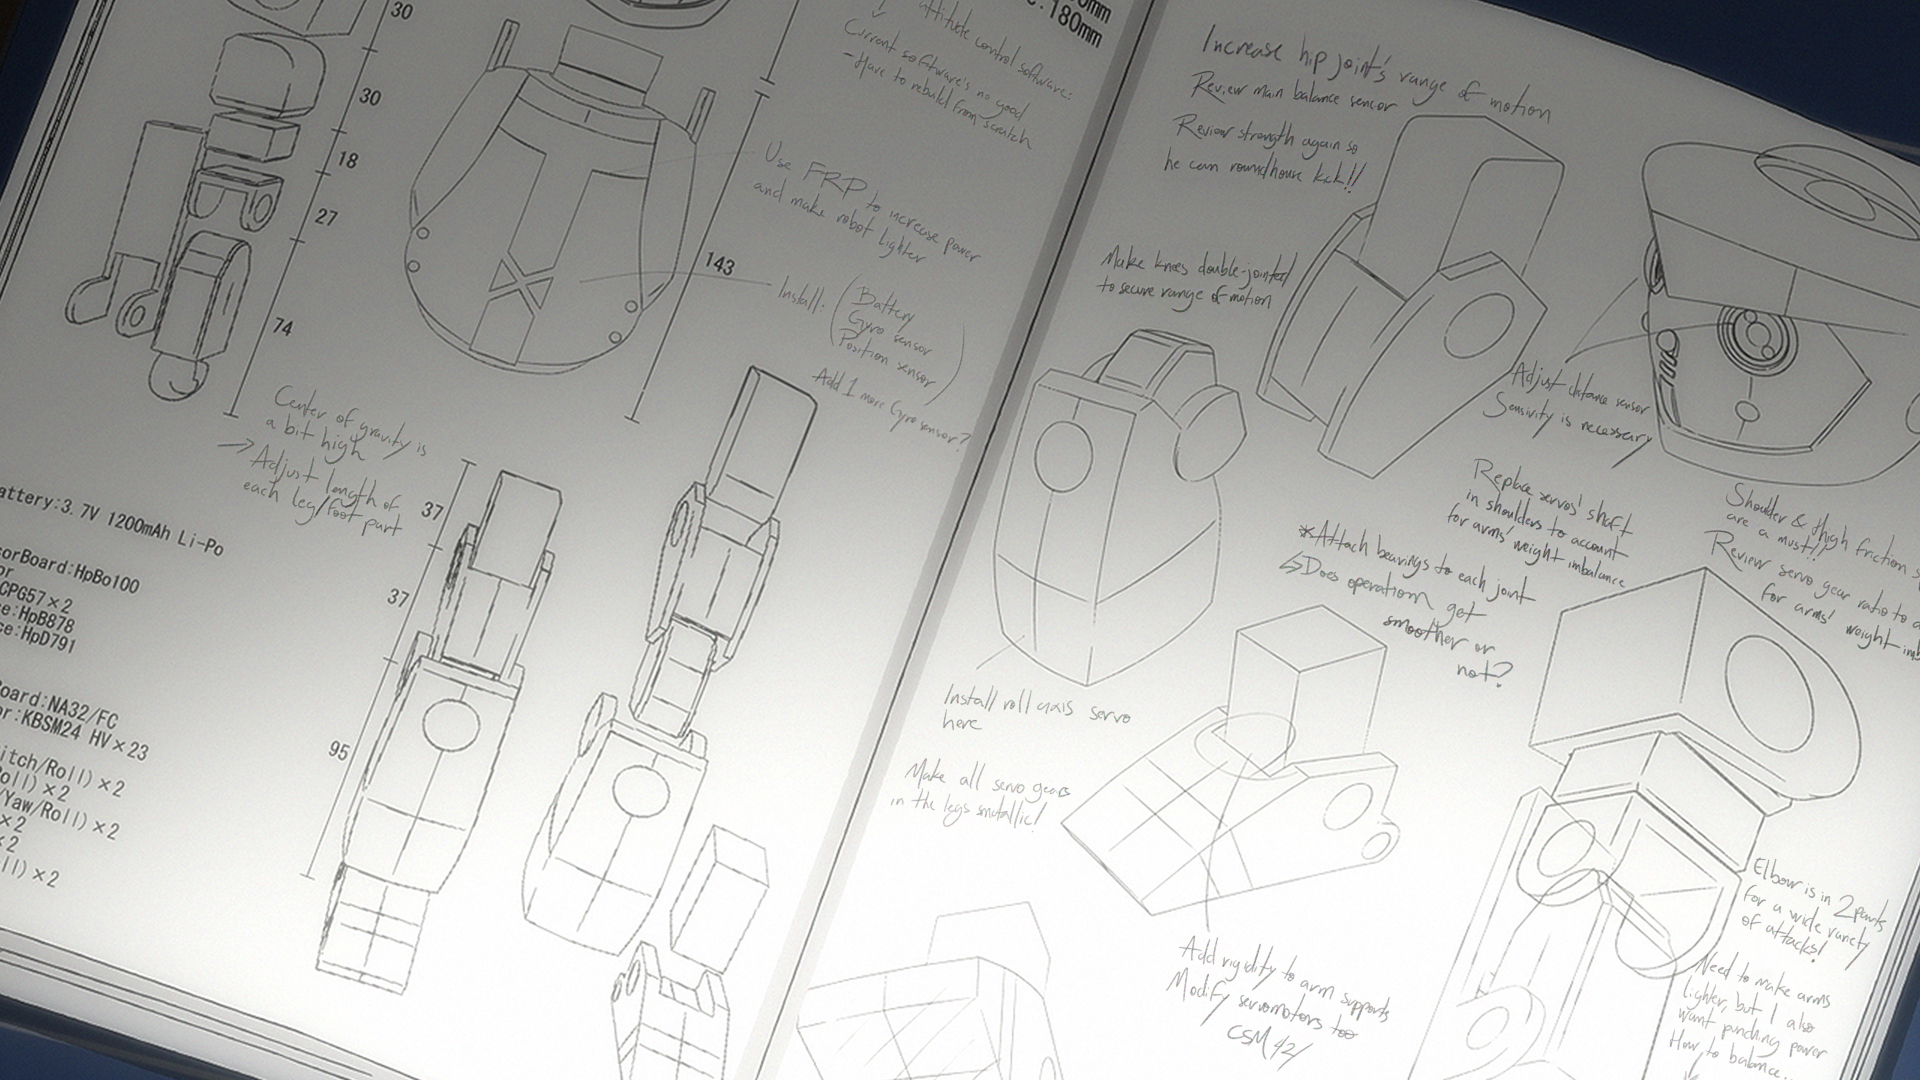 30
30
18
27
74
0mm
:180mm
attitude control software:
Current software's no good
-Have to rebuild from scratch
Use FRP to increase power
and make robot lighter
143
Install:
Battery
Gyro sensor
Position sensor
Add 1 more Gyro sensor?
Center of gravity is
a bit high
→ Adjust length of
each leg/foot part
37
37
95
attery:3.7V 1200mAh Li-Po
sorBoard:HpBo100
or
CPG57×2
e:HpB878
ce:HpD791
oard:NA32/FC
or:KBSM24 HV×23
itch/Roll)×2
Roll)×2
/Yaw/Roll)×2
×2
×2
ll)×2
Increase hip joint's range of motion
Review main balance sensor
Review strength again so
he can roundhouse kick!!
Make knees double-jointed
to secure range of motion
Adjust distance sensor
Sensivity is necessary
Replace servos' shaft
in shoulders to account
for arms' weight imbalance
Shoulder & thigh friction s
are a must!!
Review servo gear ratio to a
for arms' weight imb
*Attach bearings to each joint
↳Does operation get
smoother or
not?
Install roll axis servo
here
Make all servo gears
in the legs metallic!
Add rigidity to arm supports
Modify servomotors too
CSM 42
Elbow is in 2 parts
for a wide variety
of attacks!
Need to make arms
lighter, but I also
want punching power
How to balance...